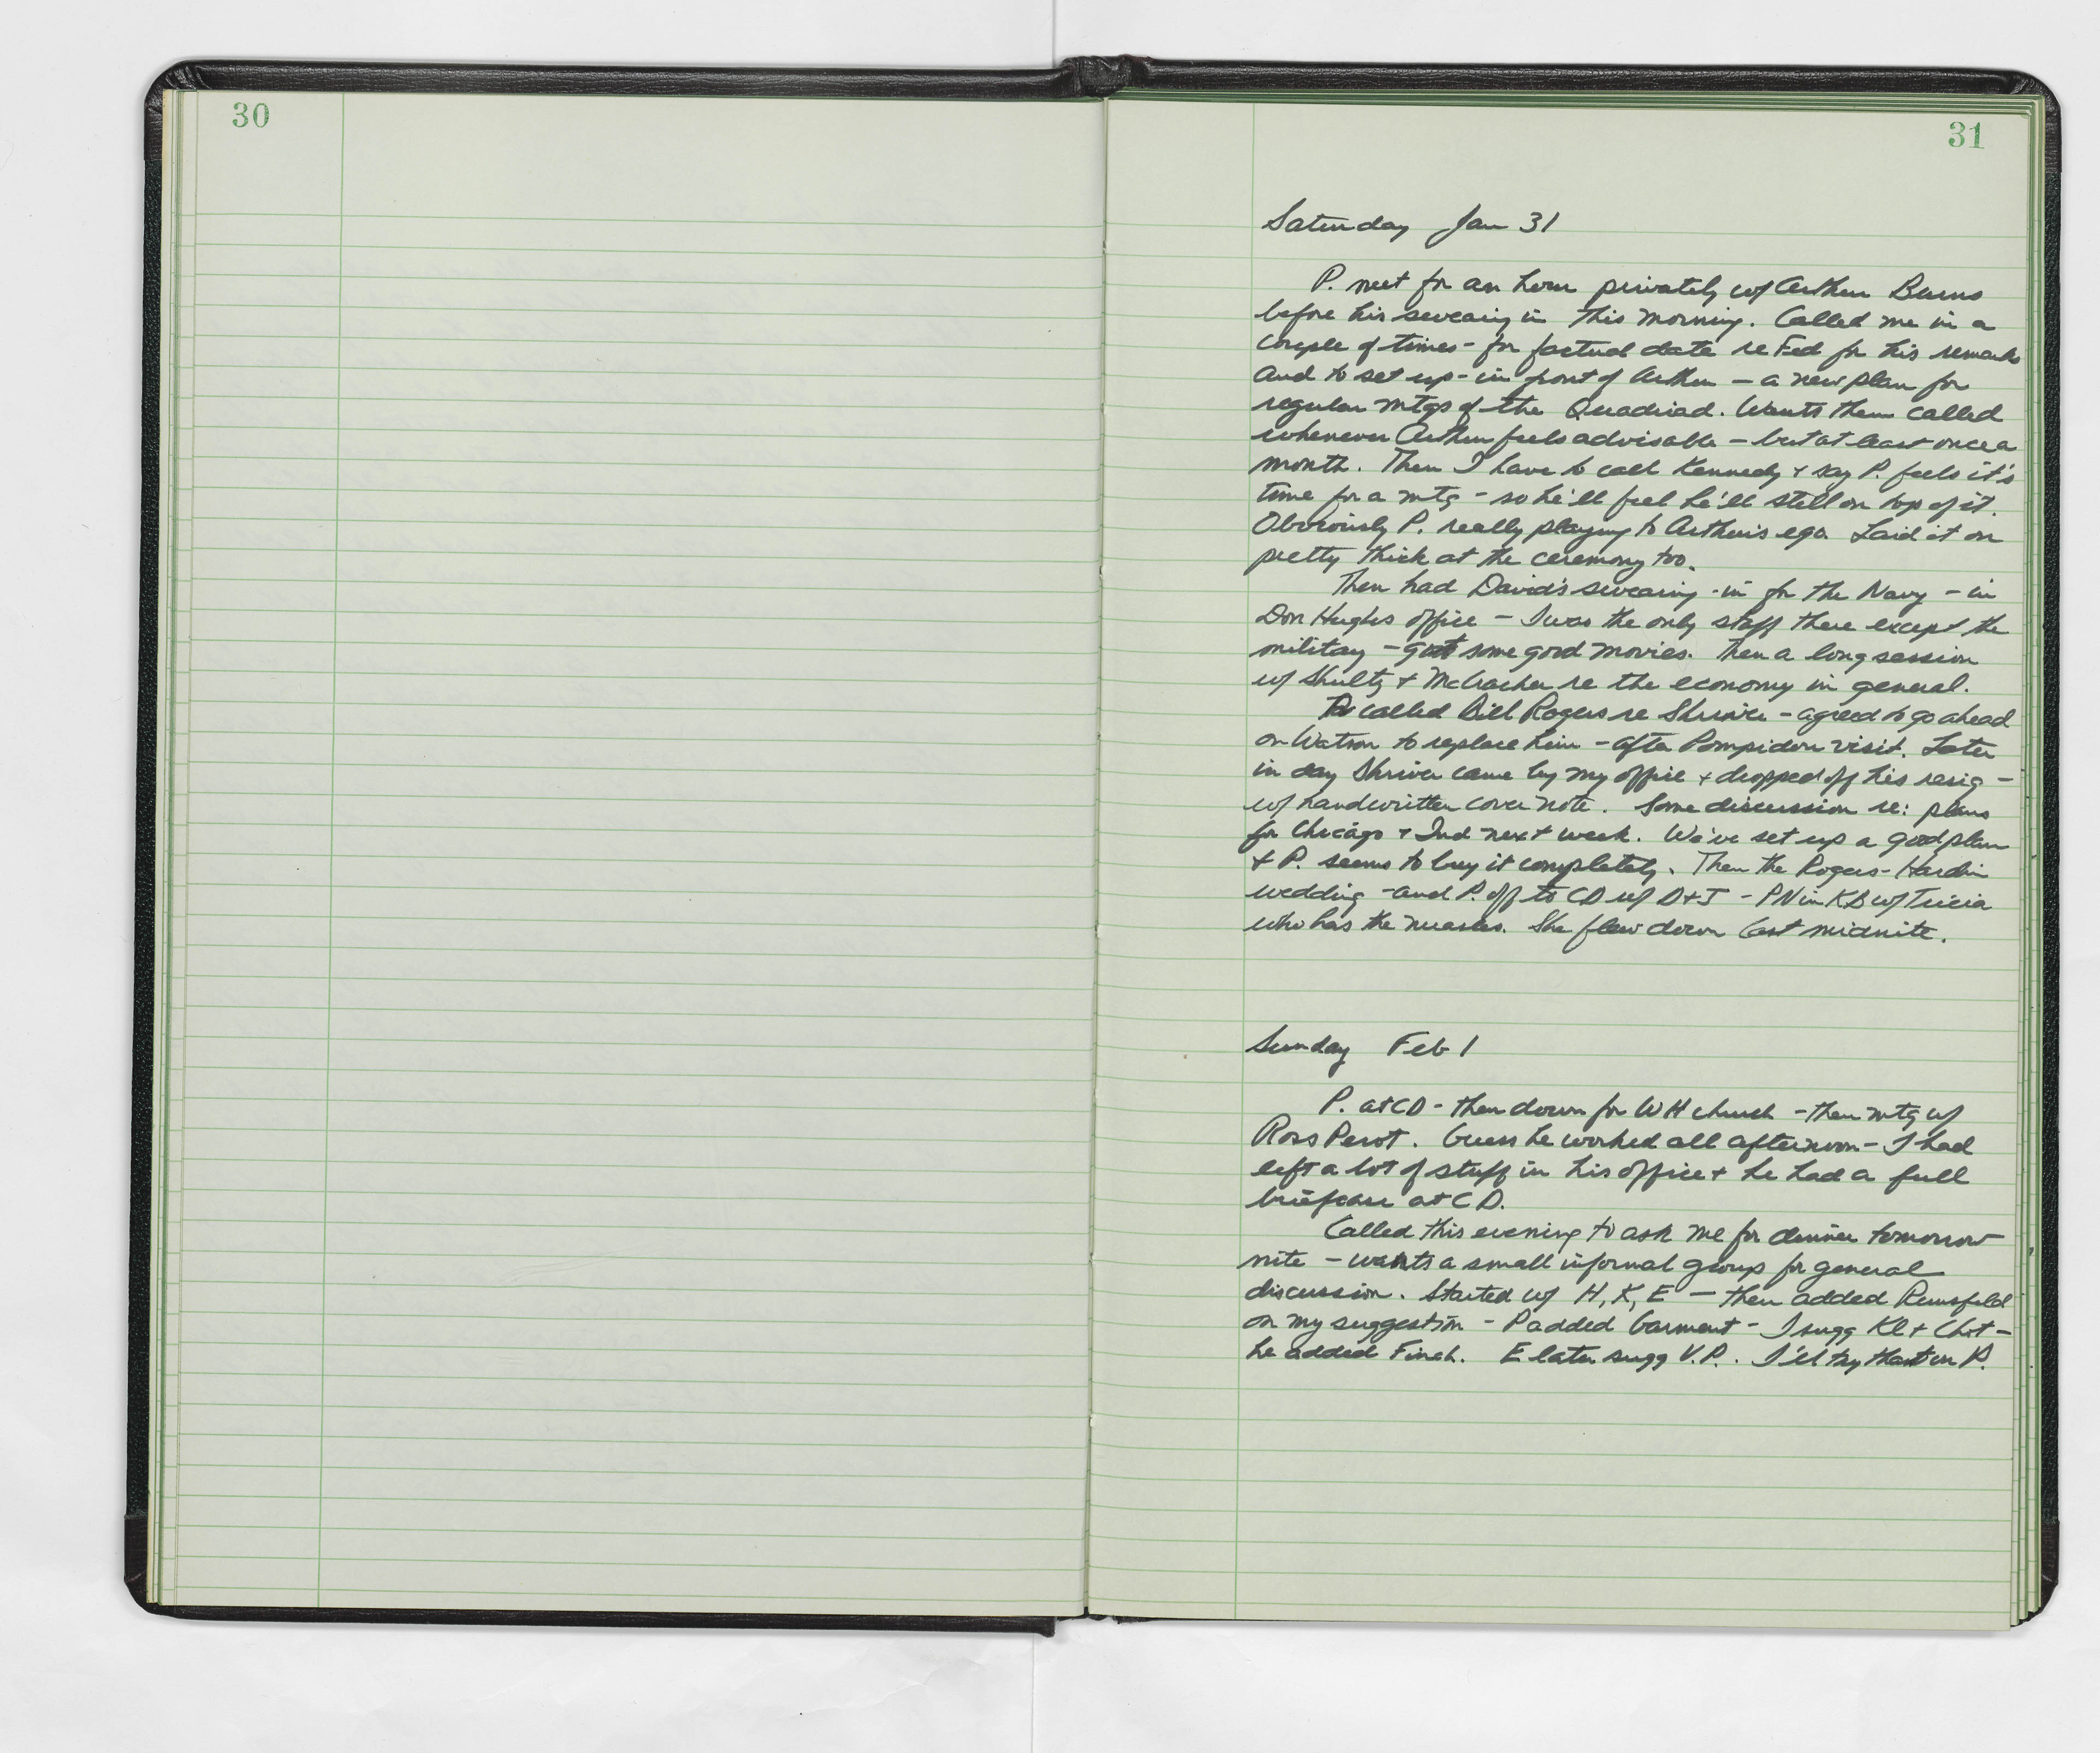 30
31
Saturday Jan 31
P. met for an hour privately w/ Arthur Burns
before his swearing in this morning. Called me in a
couple of times - for factual data re Fed for his remarks
and to set up - in front of Arthur - a new plan for
regular mtgs of the Quadriad. Wants them called
whenever Arthur feels advisable - but at least once a
month. Then I have to call Kennedy + say P. feels it's
time for a mtg - so he'll feel he'll still on top of it.
Obviously P. really playing to Arthur's ego. Laid it on
pretty thick at the ceremony too.
Then had David's swearing-in for the Navy - in
Don Hughes office - I was the only staff there except the
military - got some good movies. Then a long session
w/ Shultz + McCracken re the economy in general.
P called Bill Rogers re Shriver - agreed to go ahead
on Watson to replace him - after Pompidou visit. Later
in day Shriver came by my office + dropped off his resig -
w/ handwritten cover note. Some discussion re: plans
for Chicago + Ind next week. We've set up a good plan
+ P. seems to buy it completely. Then the Rogers-Hardin
wedding - and P. off to CD w/ D+J - PN in KB w/ Tricia
who has the measles. She flew down last midnite.
Sunday Feb 1
P. at CD - then down for WH church - then mtg w/
Ross Perot. Guess he worked all afternoon - I had
left a lot of stuff in his office + he had a full
briefcase at CD.
Called this evening to ask me for dinner tomorrow
nite - wants a small informal group for general
discussion. Started w/ H, K, E - then added Rumsfeld
on my suggestion - P added Garment - I sugg Kl + Chot -
he added Finch. E later sugg V.P. . I'll try that on P.